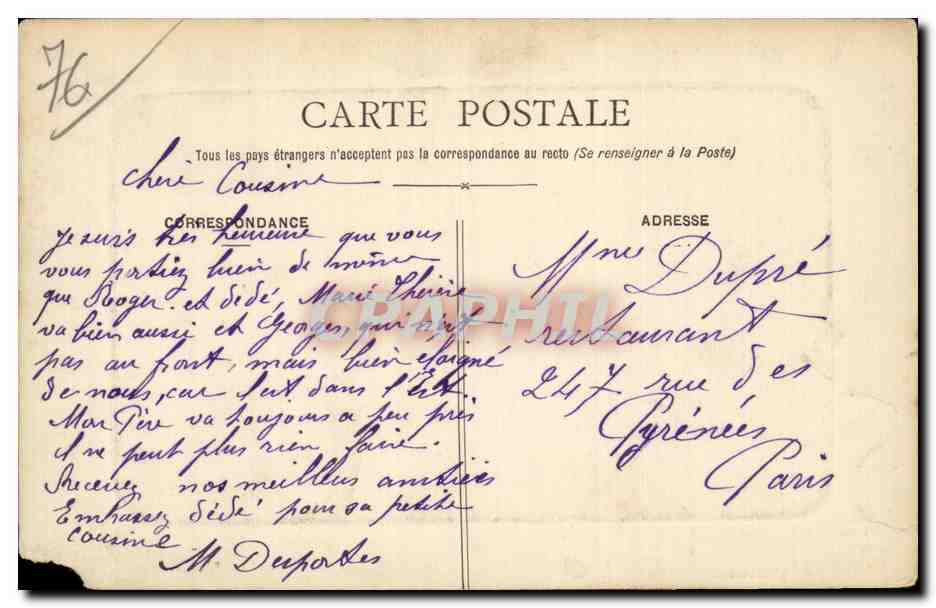 76
CARTE POSTALE
Tous les pays étrangers n'acceptent pas la correspondance au recto (Se renseigner à la Poste)
chère Cousine
CORRESPONDANCE
Je suis très heureuse que vous
vous portiez bien de même
que Roger et dédé, Marie Thérèse
va bien aussi et Georges, qui n'est
pas au front, mais bien éloigné
de nous, car il est dans l'Est
Mon Père va toujours a peu près
il ne peut plus rien faire.
Recevez nos meilleurs amitiés
Embrassez dédé pour sa petite
cousine
M. Desportes
ADRESSE
Mme Dupré
restaurant
247 rue des
Pyrénées
Paris
CPAPHIL